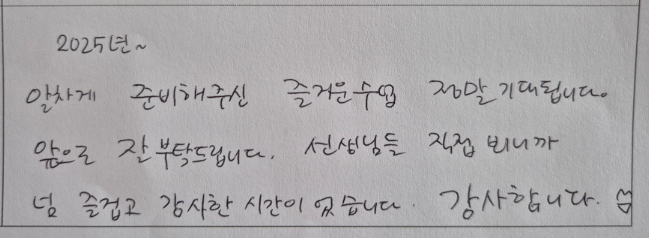 2025년~
알차게 준비해주신 즐거운수업 정말기대됩니다.
앞으로 잘부탁드립니다. 선생님들 직접 뵈니까
넘 즐겁고 감사한 시간이었습니다. 감사합니다.